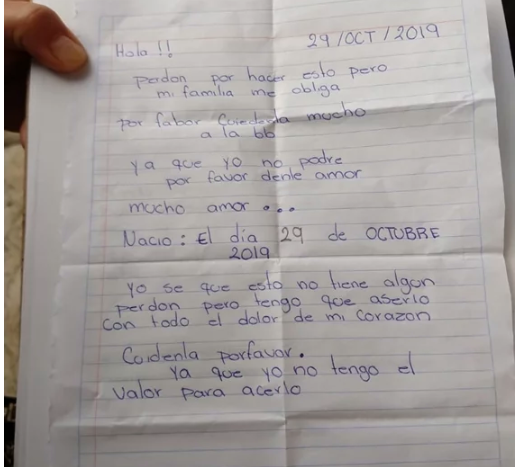 29/OCT/2019
Hola !!
perdon por hacer esto pero
mi familia me obliga
por fabor Cuidenla mucho
a la bb
ya que yo no podre
por favor denle amor
mucho amor ...
Nacio: El dia 29 de OCTUBRE
2019
yo se que esto no tiene algun
perdon pero tengo que aserlo
con todo el dolor de mi corazon
Cuidenla porfavor.
ya que yo no tengo el
valor para acerlo